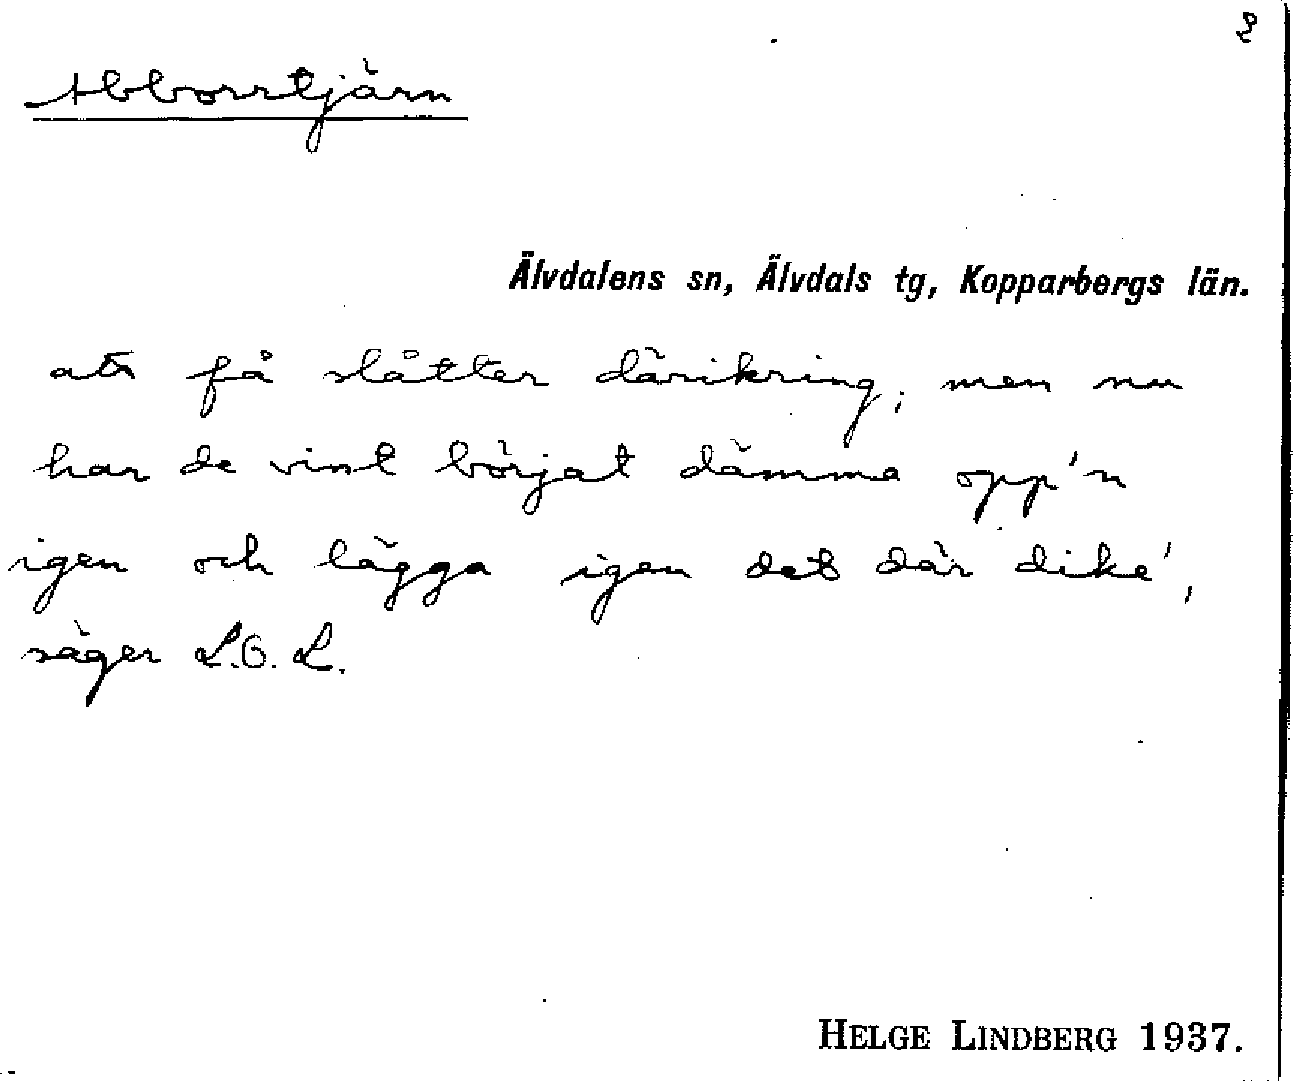 2
Abborrtjärn
Älvdalens sn, Älvdals tg, Kopparbergs län.
att få slåtter därikring, men nu
har de visst börjat dämma opp'n
igen och lägga igen det där dike',
säger L.O.L.
HELGE LINDBERG 1937.